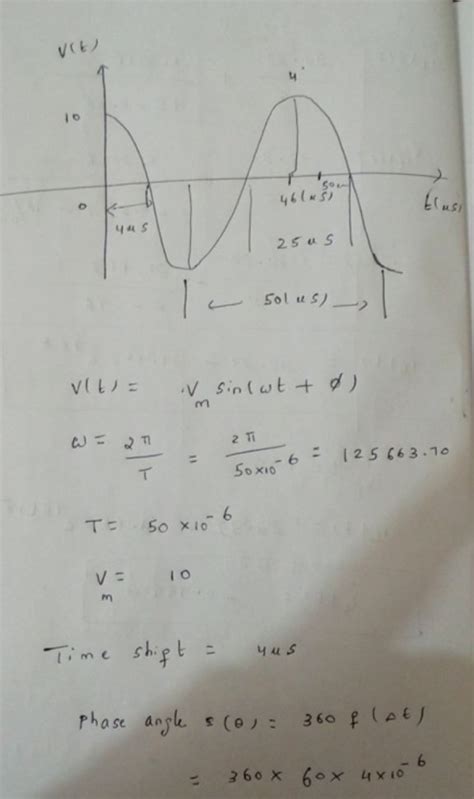 V(t)
4
10
0
4us
46(us)
50us
t(us)
25us
50(us)
V(t) = Vm sin(ωt + ϕ)
ω = 2π/T = 2π/50×10^-6 = 125663.70
T = 50 ×10^-6
Vm = 10
Time shift = 4us
phase angle s(θ) = 360 f (Δt)
= 360× 60× 4×10^-6